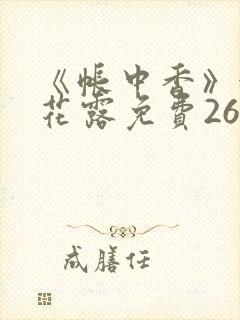 《帐中香》
花露免費26
成膳任